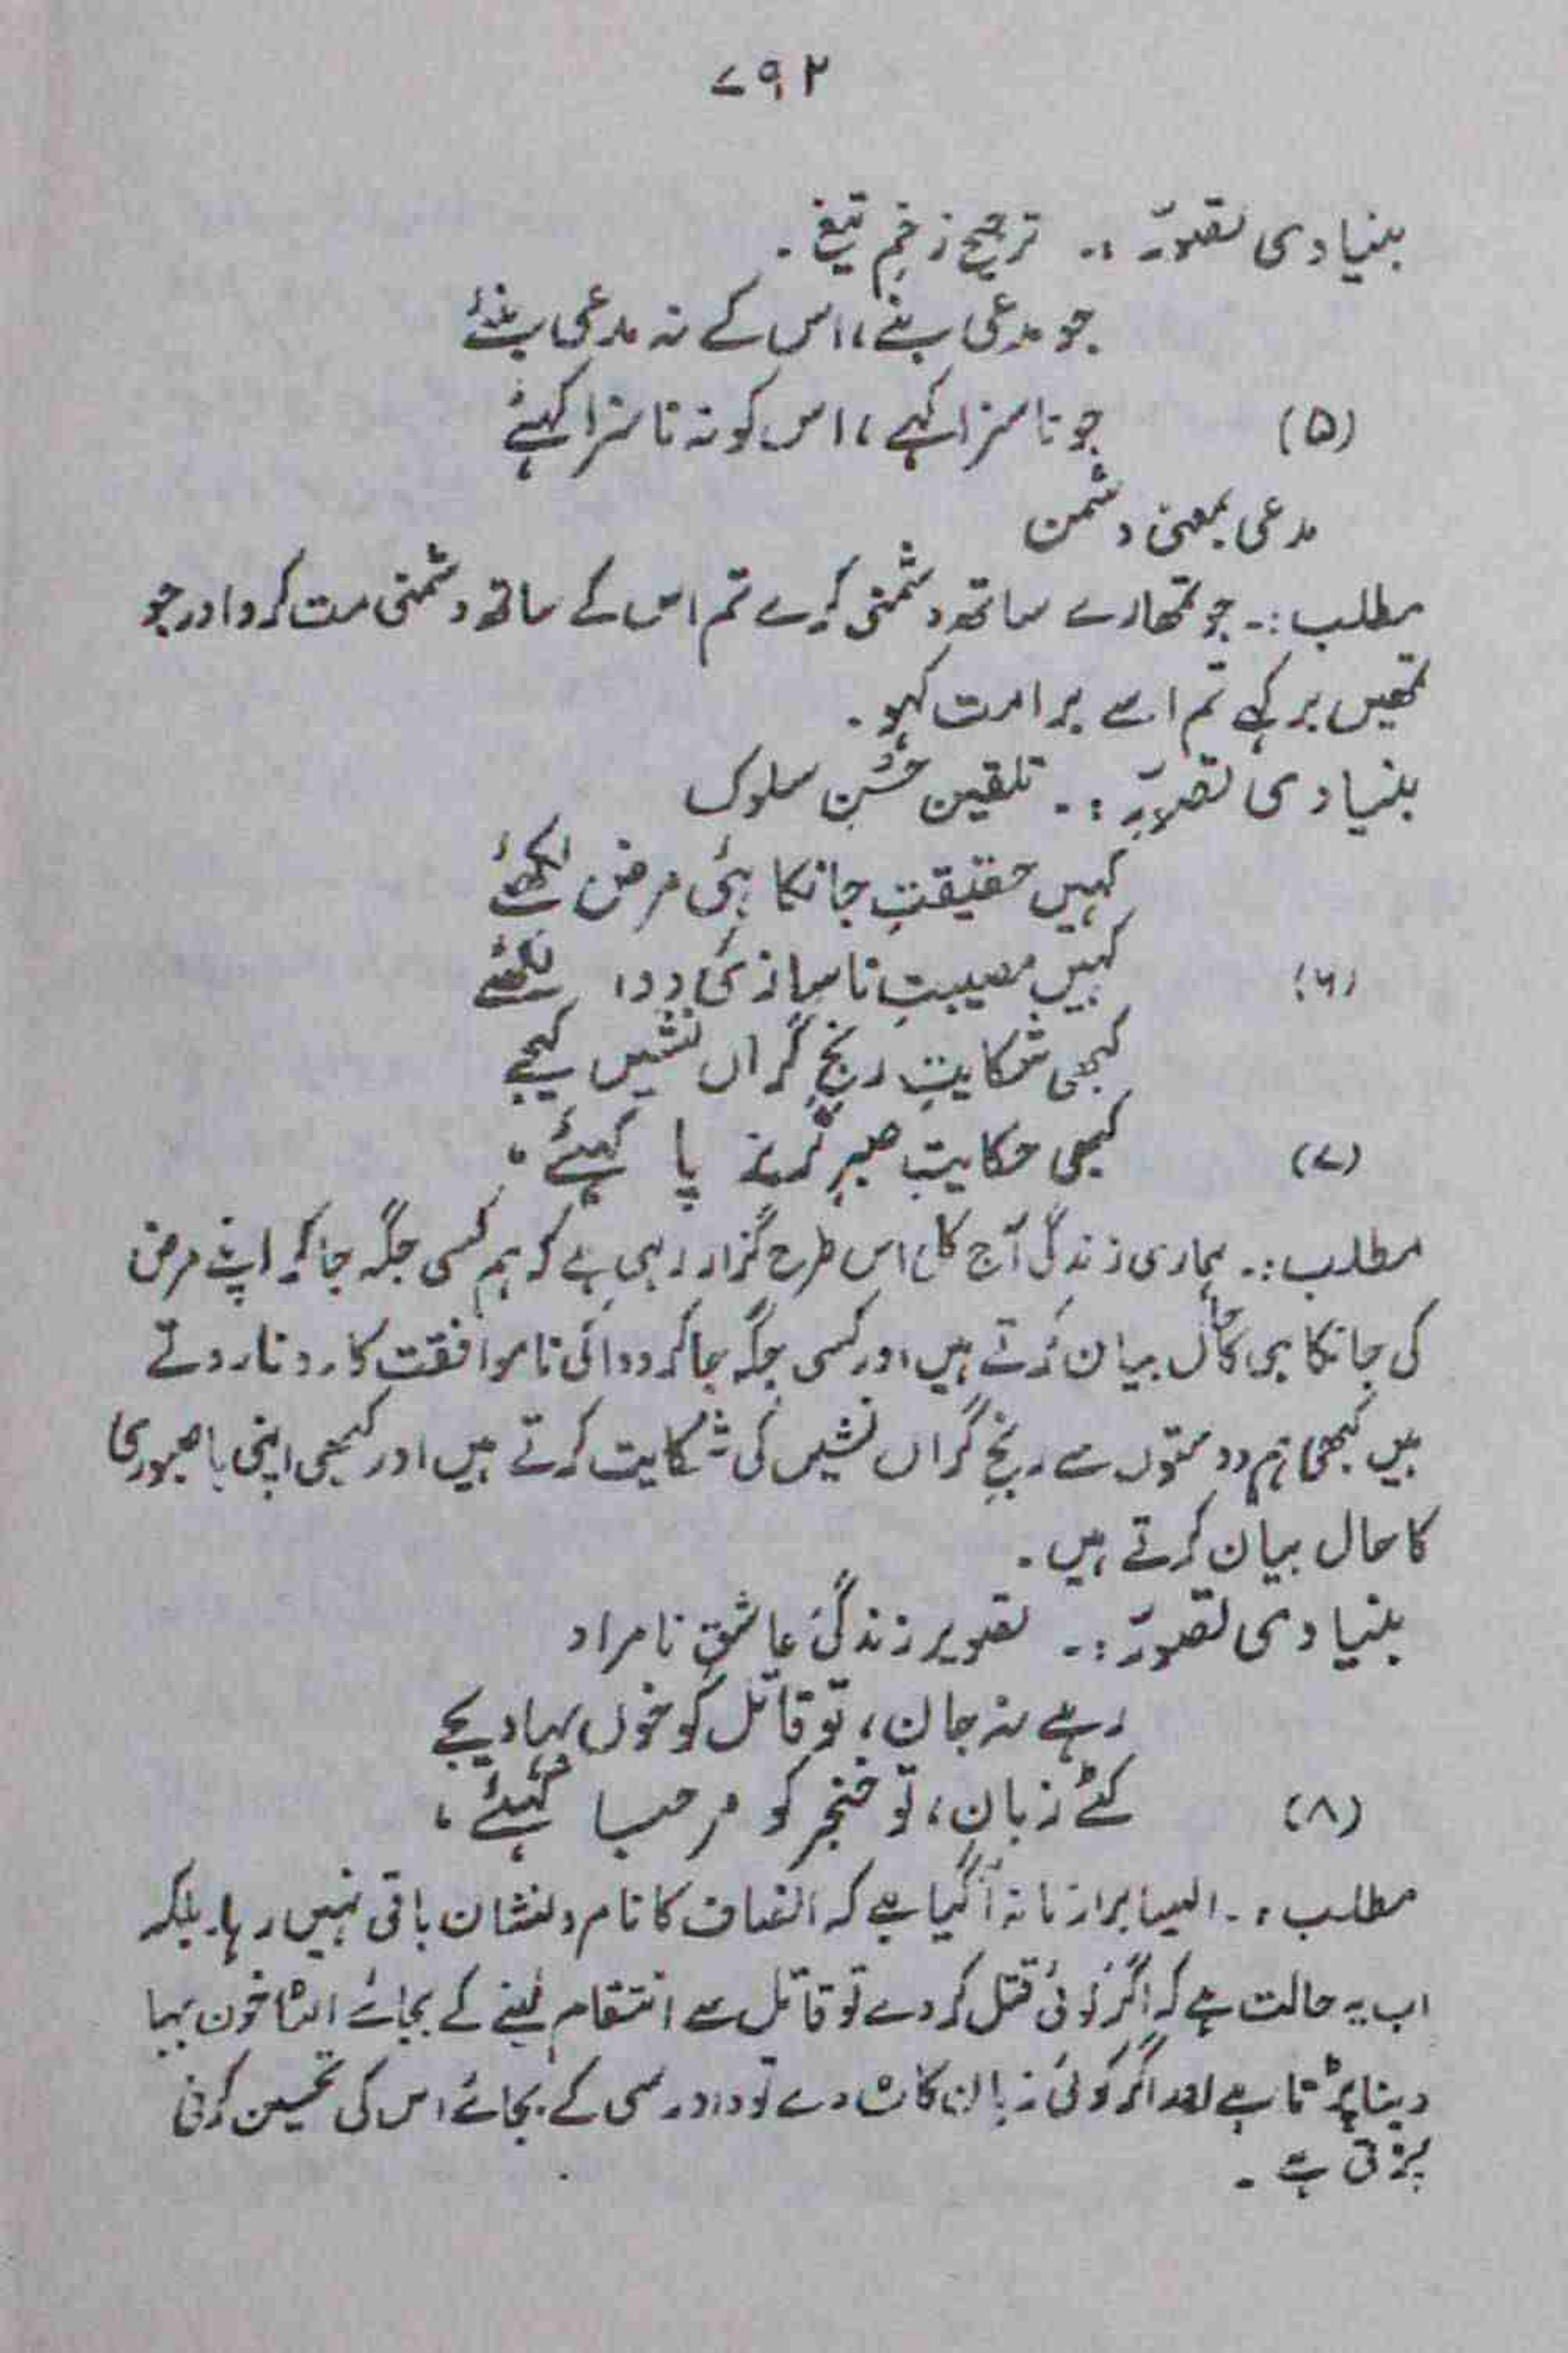 ۷۹۲
بنیادی تصوّر :۔ ترجیحِ زخمِ تیغ ۔
جو مدعی بنے، اس کے نہ مدعی بنئے
(۵) جو ناسزا کہے، اس کو نہ ناسزا کہئے
مدعی بمعنی دشمن
مطلب :۔ جو تمھارے ساتھ دشمنی کرے تم اس کے ساتھ دشمنی مت کرو اور جو
تمھیں بر کہے تم اسے برا مت کہو ۔
بنیادی تصوّر :۔ تلقین حُسنِ سلوک
کہیں حقیقتِ جانکاہئی مرض لکھئے
(۶) کہیں مصیبتِ ناسازئی دوا لکھئے
کبھی شکایتِ رنجِ گراں نشیں کیجے
(۷) کبھی حکایتِ صبرِ گریز پا کہئے ۔
مطلب :۔ ہماری زندگی آج کل اس طرح گزار رہی ہے کہ ہم کسی جگہ جا کر اپنے مرض
کی جانکاہی کا حال بیان کرتے ہیں اور کسی جگہ جا کر دوائی ناموافقت کا رونا روتے
ہیں کبھی ہم دوستوں سے رنجِ گراں نشیں کی شکایت کرتے ہیں اور کبھی اپنی باصبوری
کا حال بیان کرتے ہیں ۔
بنیادی تصوّر :۔ تصویر زندگیٔ عاشقِ نامراد
رہے نہ جان، تو قاتل کو خوں بہا دیجے
(۸) کٹے زبان، تو خنجر کو مرحبا کہئے ،
مطلب :۔ ایسا برا زمانہ آ گیا ہے کہ انصاف کا نام و نشان باقی نہیں رہا۔ بلکہ
اب یہ حالت ہے کہ اگر کوئی قتل کر دے تو قاتل سے انتقام لینے کے بجائے الٹا خون بہا
دینا پڑتا ہے اور اگر کوئی زبان کاٹ دے تو دادرسی کے بجائے اس کی تحسین کرنی
پڑتی ہے ۔